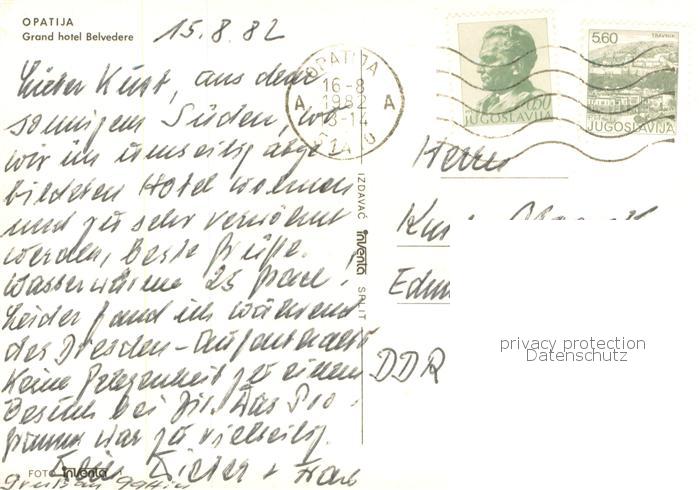 OPATIJA
Grand hotel Belvedere
15.8.82
Lieber Kurt, aus dem
sonnigen Süden, wo
wir im umseitig abge
bildeten Hotel wohnen
und zu sehr verwöhnt
werden, beste Grüße.
Wasserwärme 25 Grad!
Leider fand ich während
des Dresden-Aufenthalts
keine Gelegenheit zu einem
Besuch bei Dir. Das Pro-
gramm war zu vielseitig.
Dein Dieter + Frau
FOTO inventa
IZDAVAČ inventa SPLIT
OPATIJA
16-8
1982
A A
JUGOSLAVIJA
5.60
TRAVNIK
JUGOSLAVIJA
Herrn
DDR
privacy protection
Datenschutz